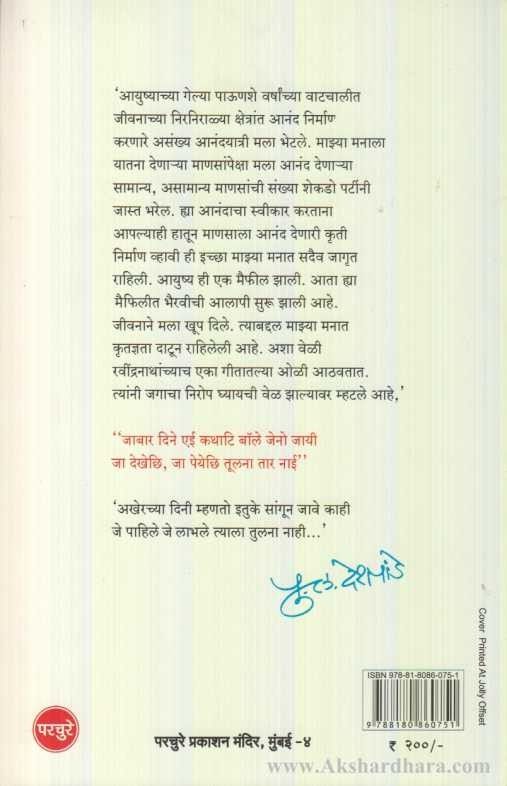 ‘आयुष्याच्या गेल्या पाऊणशे वर्षांच्या वाटचालीत
जीवनाच्या निरनिराळ्या क्षेत्रांत आनंद निर्माण
करणारे असंख्य आनंदयात्री मला भेटले. माझ्या मनाला
यातना देणाऱ्या माणसांपेक्षा मला आनंद देणाऱ्या
सामान्य, असामान्य माणसांची संख्या शेकडो पटींनी
जास्त भरेल. ह्या आनंदाचा स्वीकार करताना
आपल्याही हातून माणसाला आनंद देणारी कृती
निर्माण व्हावी ही इच्छा माझ्या मनात सदैव जागृत
राहिली. आयुष्य ही एक मैफील झाली. आता ह्या
मैफिलीत भैरवीची आलापी सुरू झाली आहे.
जीवनाने मला खूप दिले. त्याबद्दल माझ्या मनात
कृतज्ञता दाटून राहिलेली आहे. अशा वेळी
रवींद्रनाथांच्याच एका गीतातल्या ओळी आठवतात.
त्यांनी जगाचा निरोप घ्यायची वेळ झाल्यावर म्हटले आहे,’
‘‘जाबार दिने एई कथाटि बॉले जेनो जायी
जा देखेछि, जा पेयेछि तूलना तार नाई’’
‘अखेरच्या दिनी म्हणतो इतुके सांगून जावे काही
जे पाहिले जे लाभले त्याला तुलना नाही...’
पु. ल. देशपांडे
Cover Printed At Jolly Offset
ISBN 978-81-8086-075-1
9 788180 860751
परचुरे
परचुरे प्रकाशन मंदिर, मुंबई -४
₹ २००/-
www.Akshardhara.com